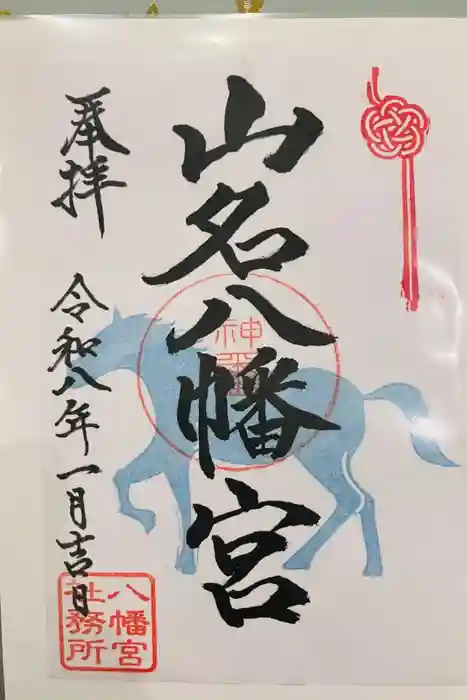 奉拝
山名八幡宮
令和八年一月吉日
神
八幡宮
社務所